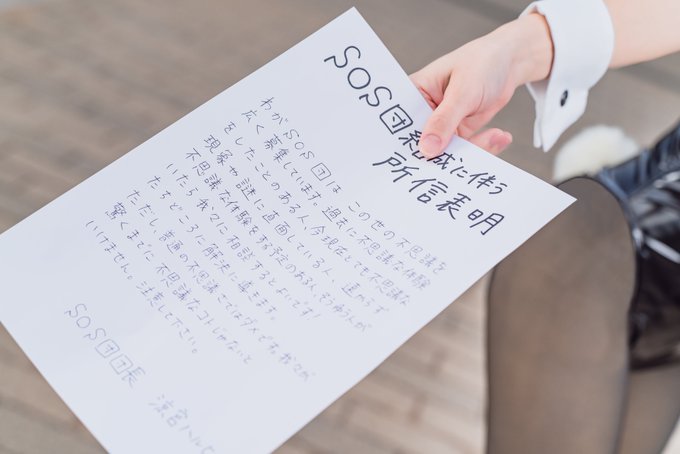 SOS団結成に伴う
所信表明
わがSOS団はこの世の不思議を
広く募集しています。過去に不思議な体験
をしたことのある人、今現在とても不思議な
現象や謎に直面している人、遠からず
不思議な体験をする予定のある人、そういう人が
いたら我々に相談するとよいです!
たちどころに解決に導きます。
ただし普通の不思議さではダメです。我々が
驚くまでに不思議なコトじゃないと
いけません。注意して下さい。
SOS団団長 涼宮ハルヒ